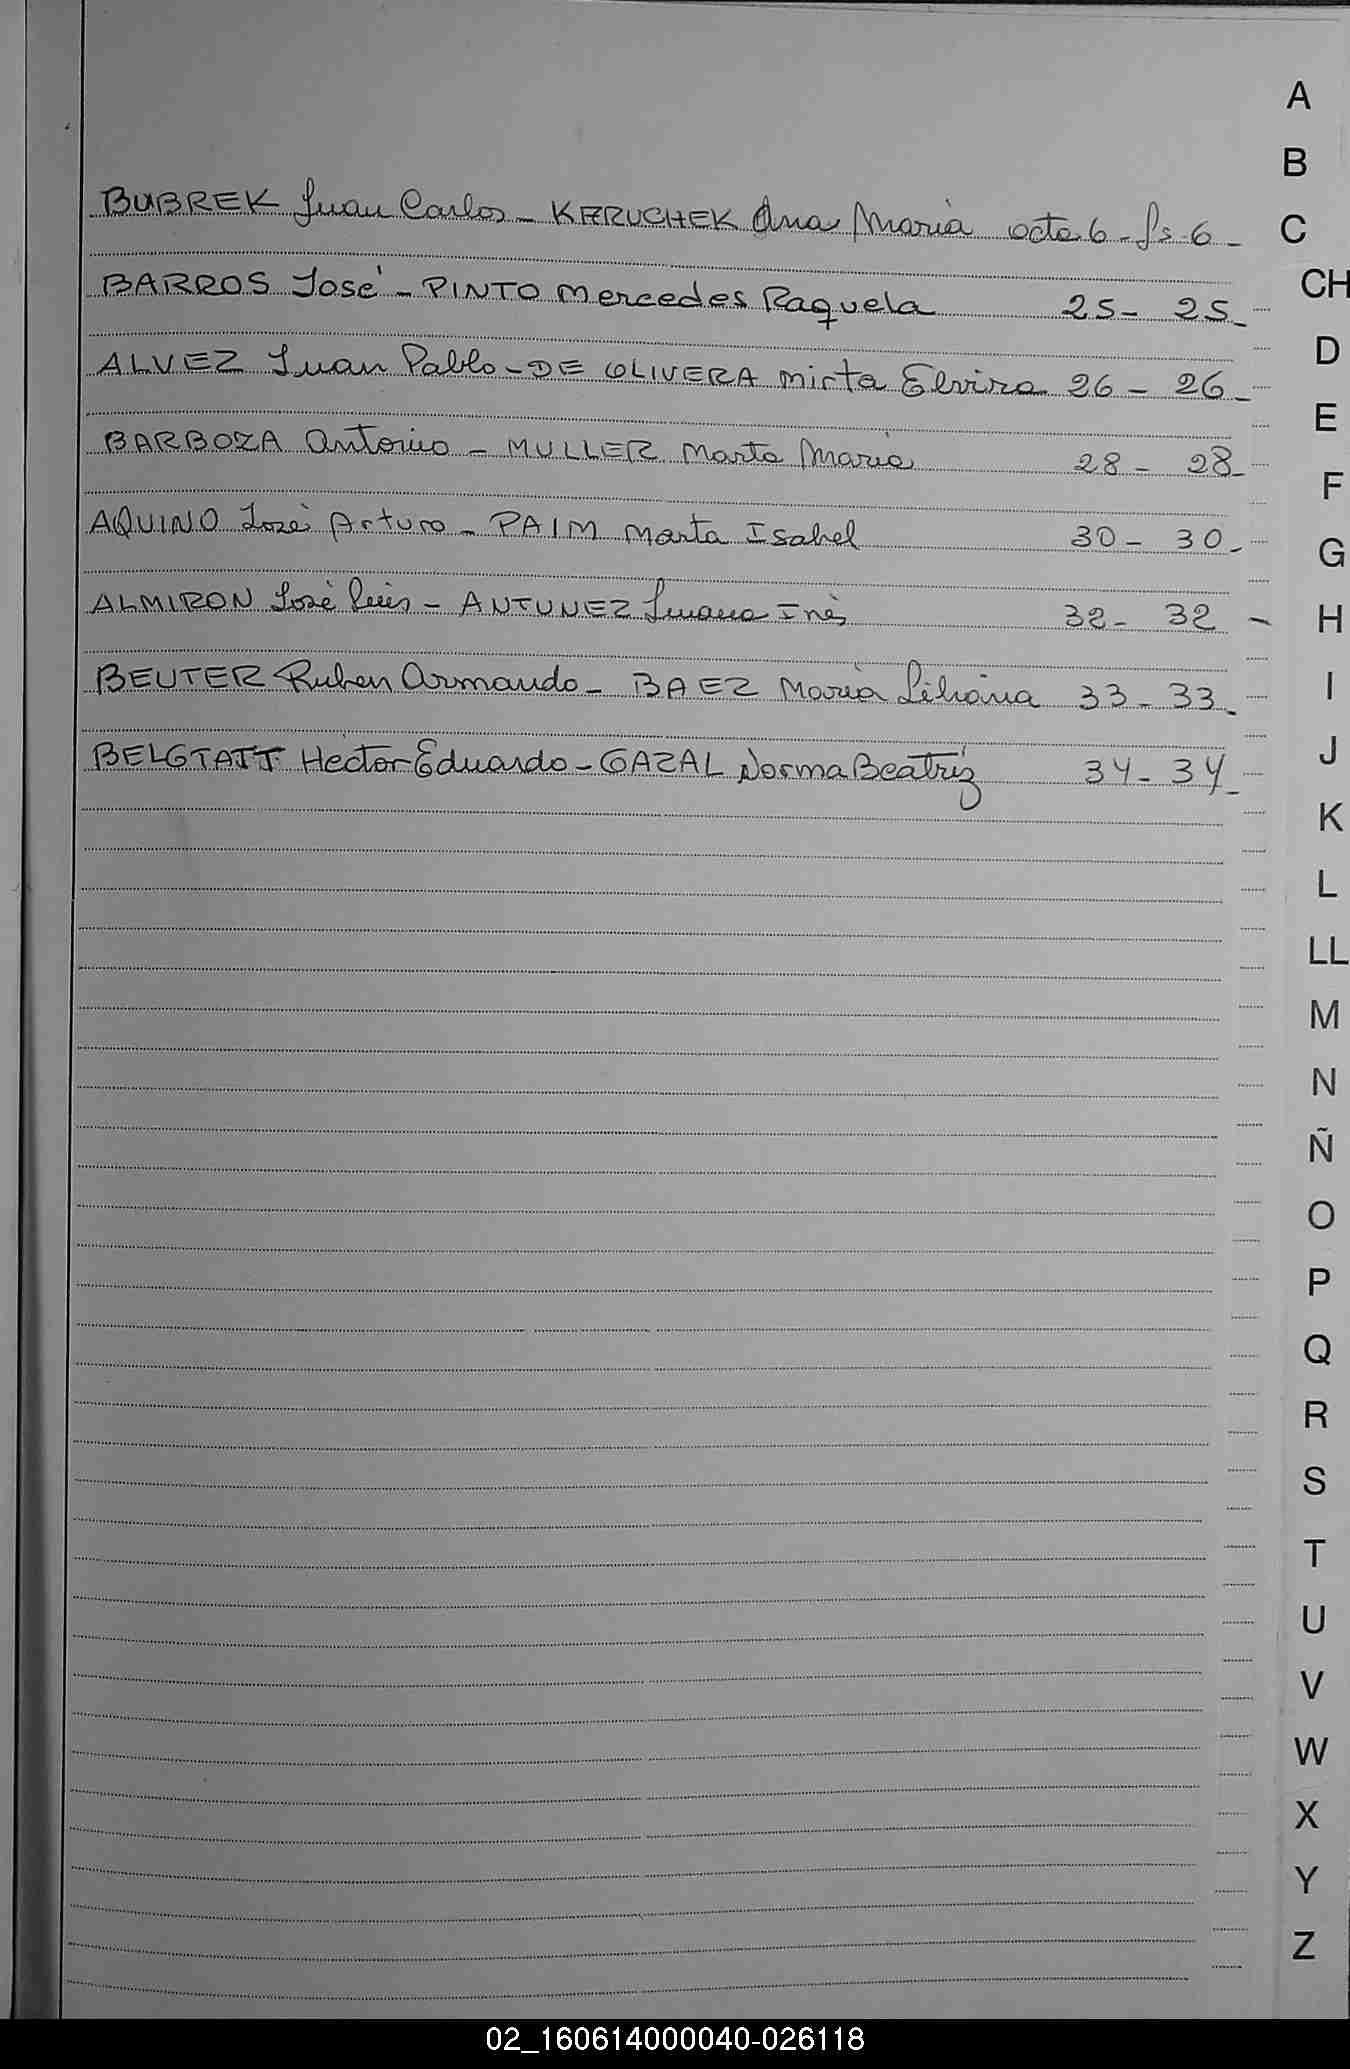 BUBREK Juan Carlos - KERUCHEK Ana Maria acta 6 - fs. 6 -
BARROS José - PINTO Mercedes Raquela 25 - 25 -
ALVEZ Juan Pablo - DE OLIVERA Mirta Elvira 26 - 26 -
BARBOZA Antonio - MULLER Marta Maria 28 - 28 -
AQUINO José Arturo - PAIM Marta Isabel 30 - 30 -
ALMIRON José Luis - ANTUNEZ Inés 32 - 32 -
BEUTER Ruben Armando - BAEZ Maria Liliana 33 - 33 -
BELGTATT Hector Eduardo - GAZAL Norma Beatriz 34 - 34 -
A
B
C
CH
D
E
F
G
H
I
J
K
L
LL
M
N
Ñ
O
P
Q
R
S
T
U
V
W
X
Y
Z
02_160614000040-026118